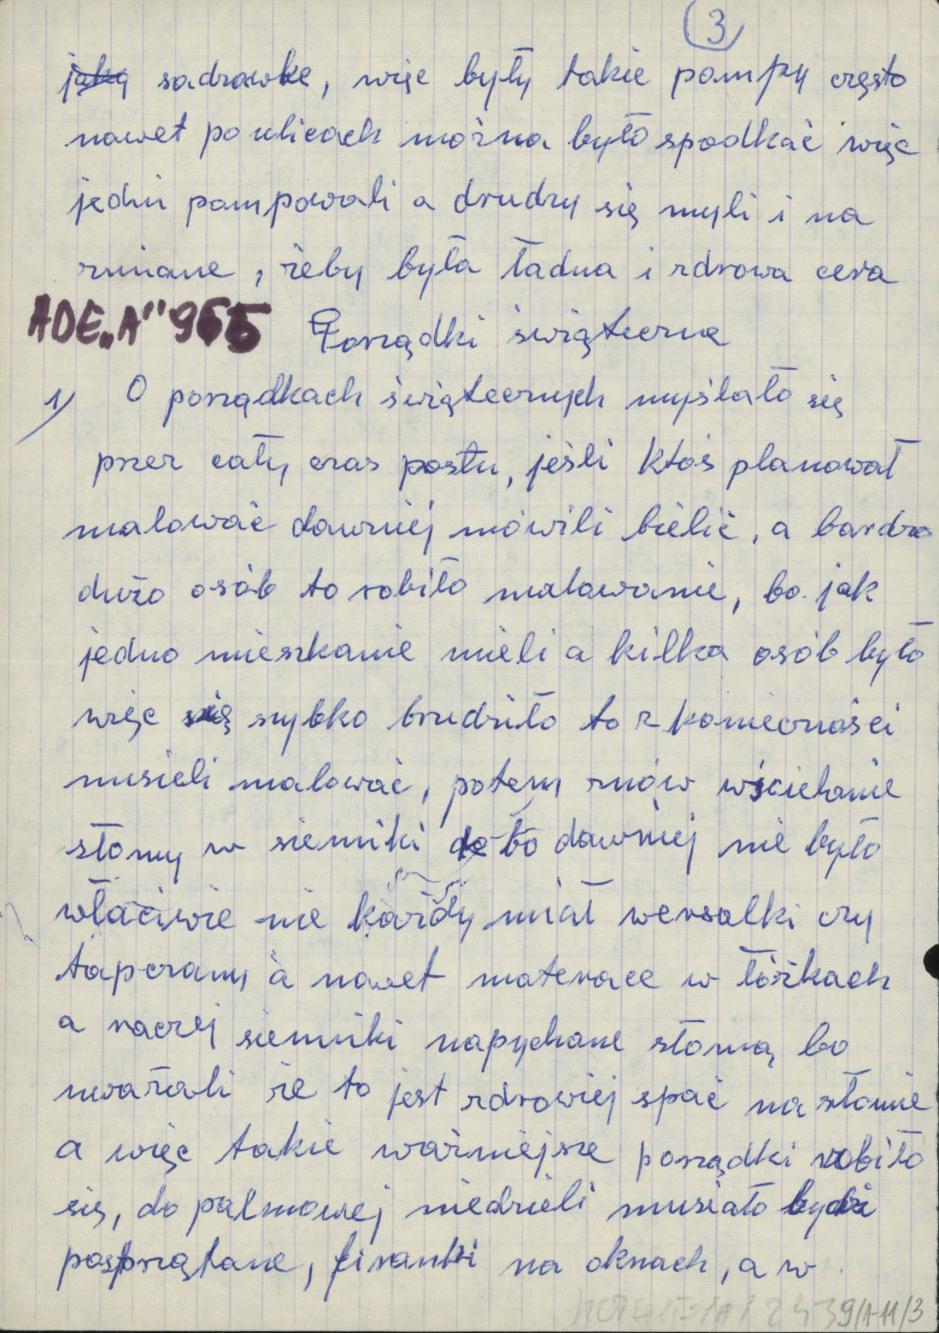 3
jaką sadzawkę, więc były takie pompy często
nawet po ulicach można było spodkać więc
jedni pompowali a drudzy się myli i na
zmianę, żeby była ładna i zdrowa cera
ADE„A" 965 Porządki świąteczne
1) O porządkach świątecznych myślało się
przez cały czas postu, jeśli ktoś planował
malować dawniej mówili bielić, a bardzo
dużo osób to robiło malowanie, bo jak
jedno mieszkanie mieli a kilka osób było
więc się szybko brudziło to z konieczności
musieli malować, potem znów wścielanie
słomy w sienniki bo dawniej nie było
właściwie nie każdy miał wersalki czy
tapczany a nawet materace w łóżkach
a raczej sienniki napychane słomą bo
uważali że to jest zdrowiej spać na słomie
a więc takie ważniejsze porządki robiło
się, do palmowej niedzieli musiało być
posprzątane, firanki na oknach, a w
9/1-11/3